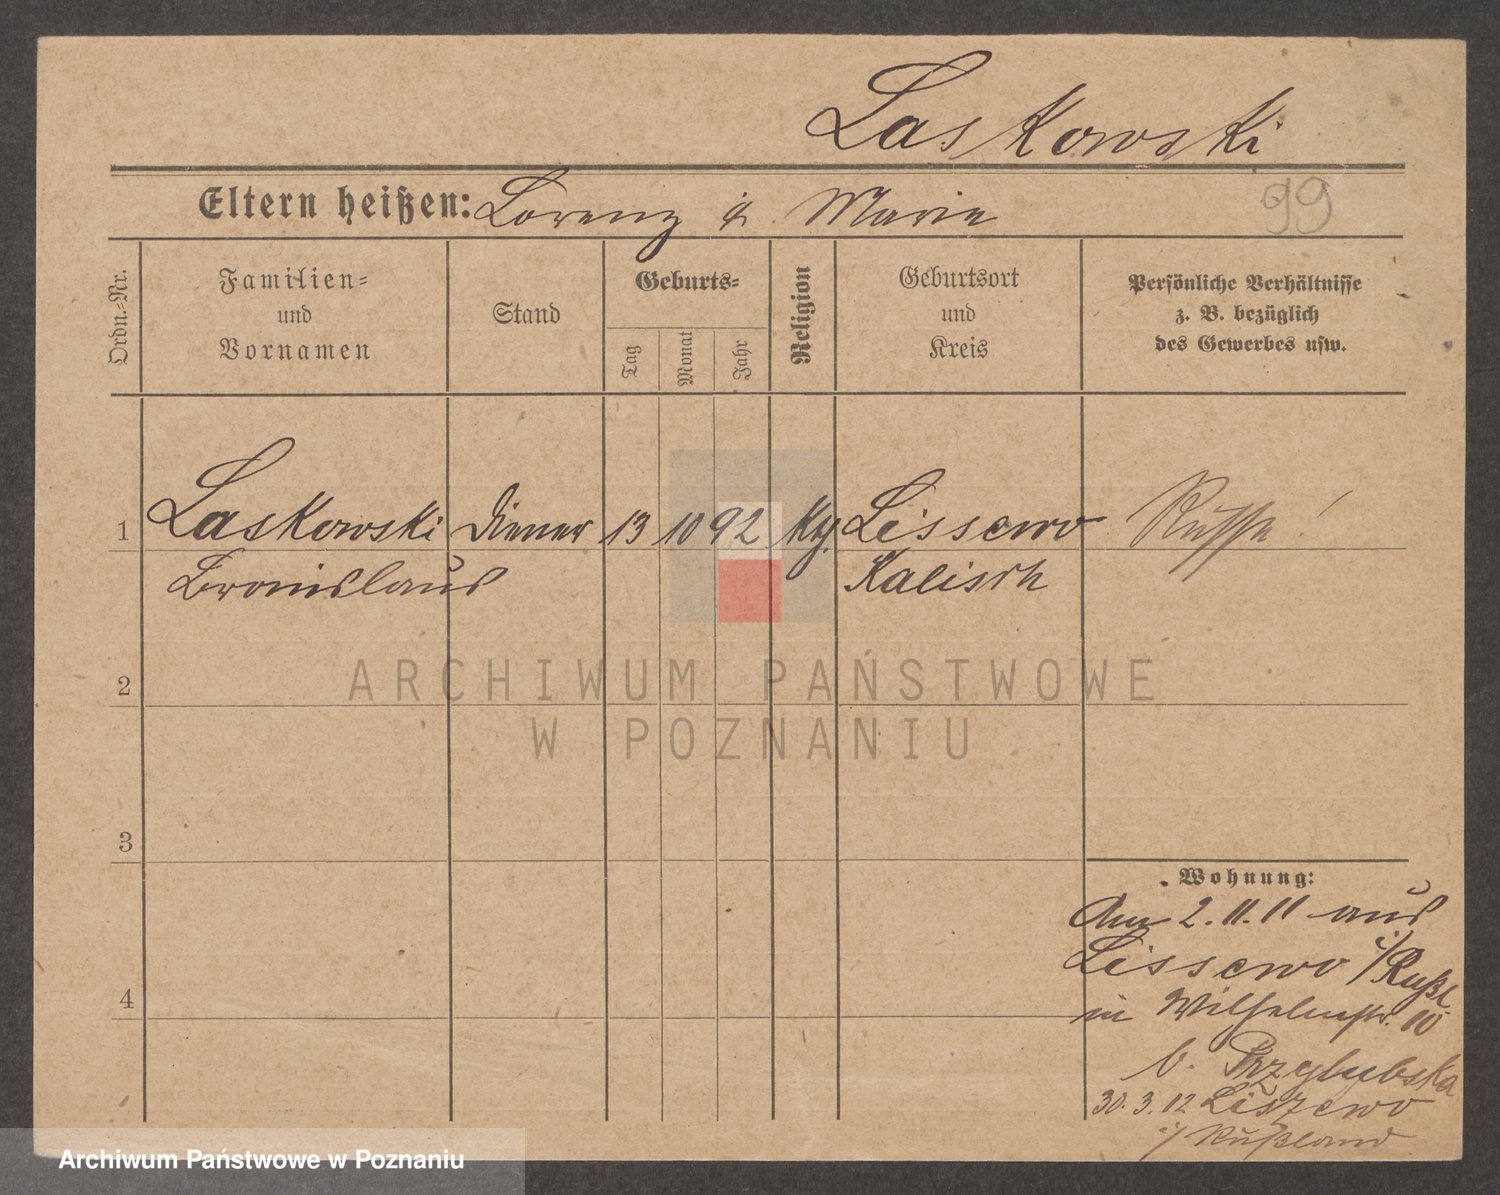 Laskowski
Eltern heißen: Lorenz & Marie
99
Ordn.=Nr.
Familien=
und
Vornamen
Stand
Geburts=
Tag
Monat
Jahr
Religion
Geburtsort
und
Kreis
Persönliche Verhältnisse
z. B. bezüglich
des Gewerbes usw.
1 Laskowski Diener 13 10 92 kg. Lissewo Russe!
Bronislaus Kalisch
2
3
4
Wohnung:
Am 2.11.11 aus
Lissewo i/Rußl.
in Wilhelmstr. 10
b. Przylubska
30.3.12 Liszewo
i/ Rußland
ARCHIWUM PAŃSTWOWE
W POZNANIU
Archiwum Państwowe w Poznaniu